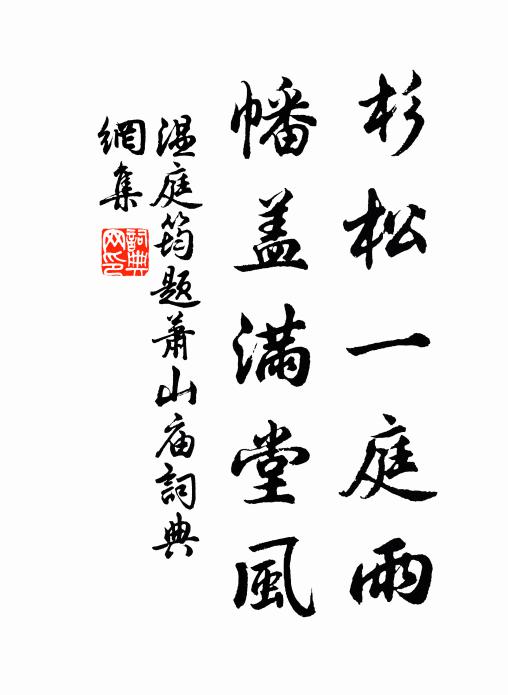 杉松一庭雨
幡盖滿堂風
温庭筠題蕭山庙詞典
網集
詞典網印